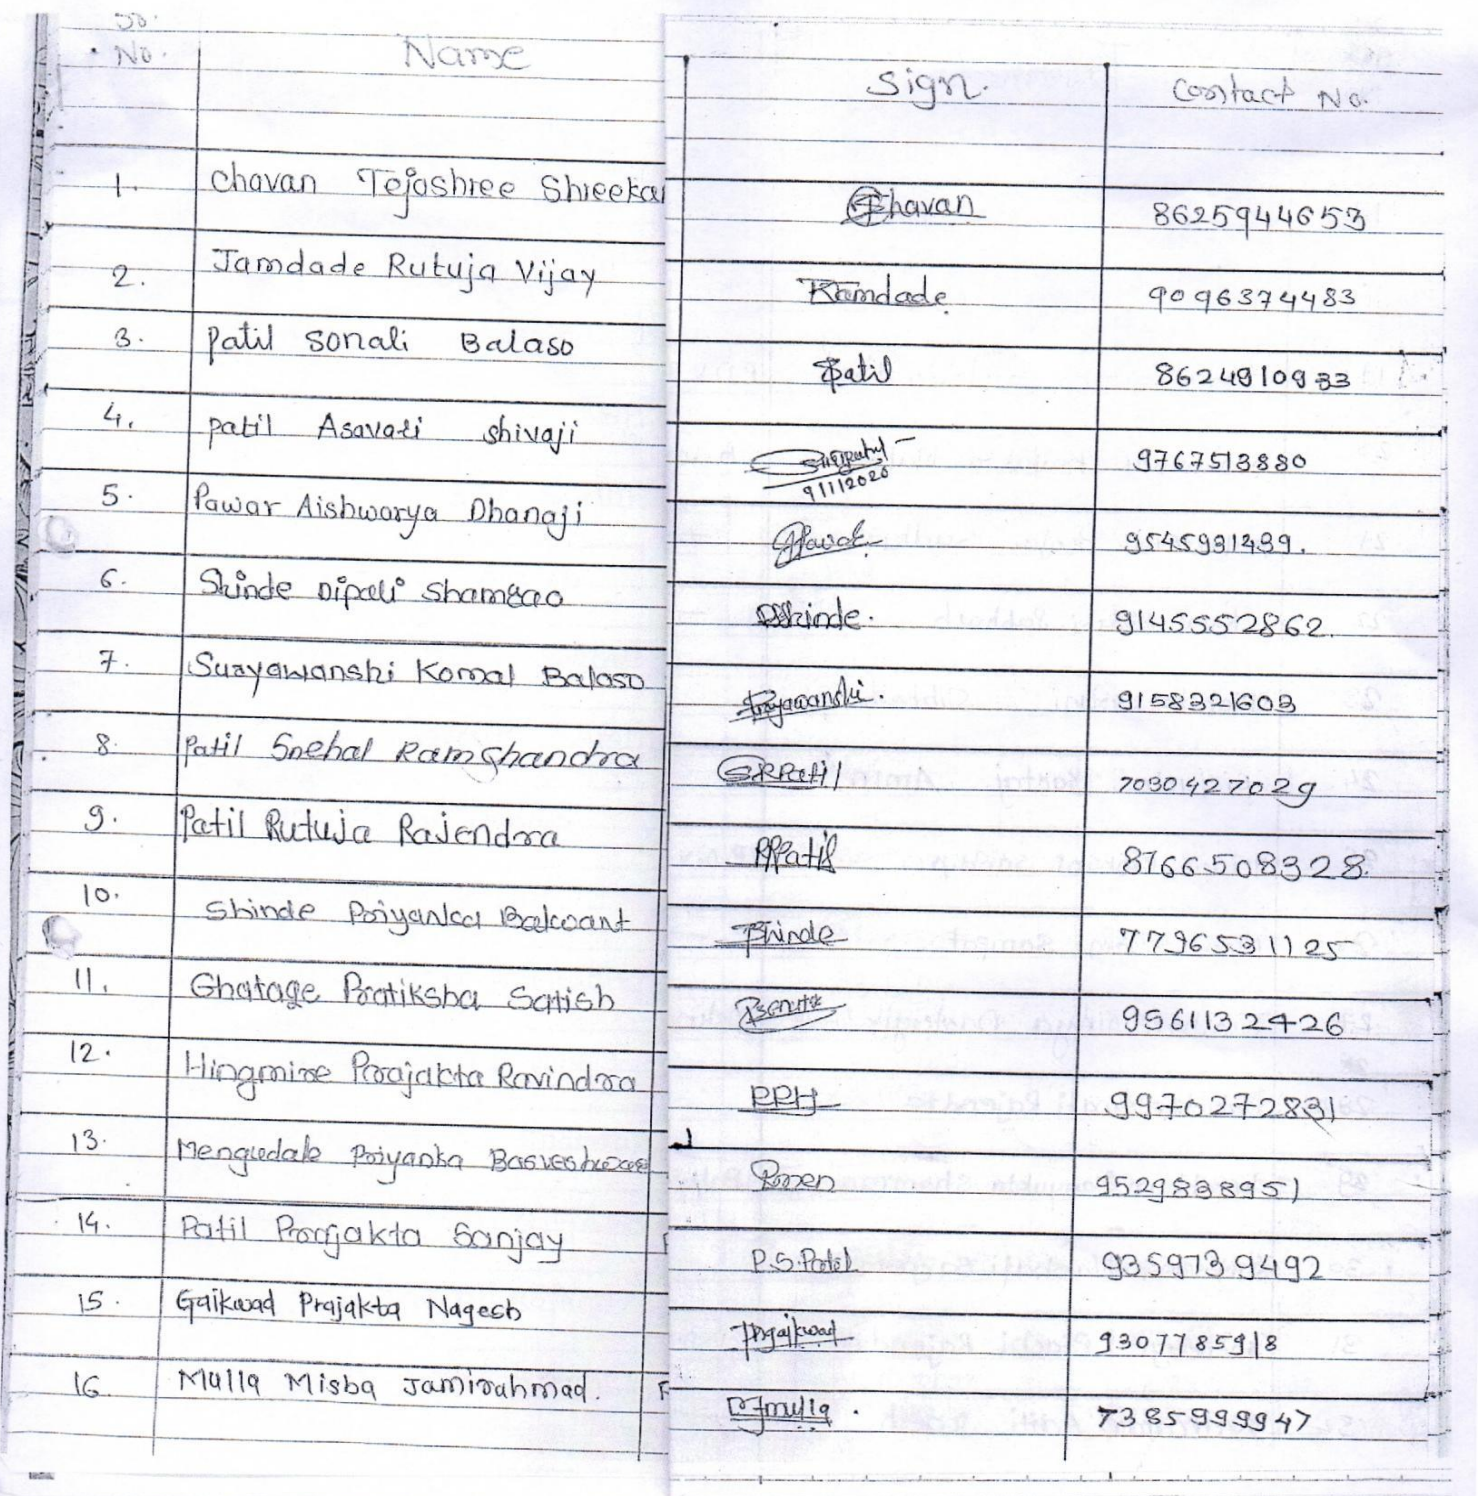 Sr.
No. Name Sign. Contact No.
1. Chavan Tejashree Shreeka Chavan 8625944653
2. Jamdade Rutuja Vijay Jamdade 9096374483
3. Patil Sonali Balaso Patil 8624910933
4. Patil Asavari Shivaji 9767513880
9/1/2020
5. Pawar Aishwarya Dhanaji 9545931439.
6. Shinde Dipali Shamrao DShinde. 9145552862.
7. Suryawanshi Komal Balaso Suryawanshi. 9158321603
8. Patil Snehal Ramchandra SRPatil 7030427029
9. Patil Rutuja Rajendra RRPatil 8766508328
10. Shinde Priyanka Balwant Shinde 7796531125
11. Ghatage Pratiksha Satish 9561132426
12. Hingmire Prajakta Ravindra PRH 9970272831
13. Mengudale Priyanka Basveshwar 9529838951
14. Patil Prajakta Sanjay P.S.Patil 9359739492
15. Gaikwad Prajakta Nagesh Pngaikwad 9307785918
16. Mulla Misba Jamirahmad. mulla. 7385999947